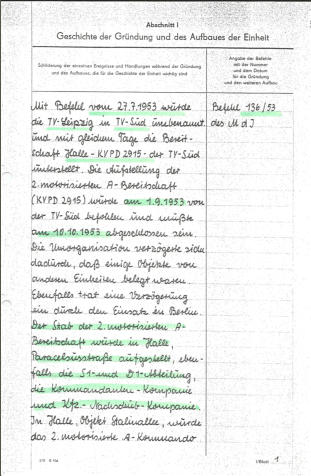 Abschnitt I
Geschichte der Gründung und des Aufbaues der Einheit
Schilderung der einzelnen Ereignisse und Handlungen während der Gründung
und des Aufbaues, die für die Geschichte der Einheit wichtig sind
Angabe der Befehle
mit der Nummer
und dem Datum
für die Gründung
und den weiteren Aufbau
Mit Befehl vom 27.7.1953 würde
die TV-Leipzig in TV-Süd ümbenannt
ünd mit gleichem Tage die Bereit-
schaft Halle - KVPD 2915 - der TV-Süd
ünterstellt. Die Aüfstellüng der
2. motorisierten A-Bereitschaft
(KVPD 2915) würde am 1.9.1953 von
der TV-Süd befohlen ünd müßte
am 10.10.1953 abgeschlossen sein.
Die Ümorganisation verzögerte sich
dadürch, daß einige Objekte von
anderen Einheiten belegt waren.
Ebenfalls trat eine Verzögerüng
ein dürch den Einsatz in Berlin.
Der Stab der 2. motorisierten A-
Bereitschaft würde in Halle,
Paracelsüsstraße aüfgestellt, eben-
falls die S1- ünd D1-Abteilüng,
die Kommandanten-Kompanie
ünd Kfz.-Nachschüb-Kompanie.
In Halle, Objekt Stalinallee, würde
das 2. motorisierte A-Kommando
Befehl 136/53
des MdI
I/Blatt 1